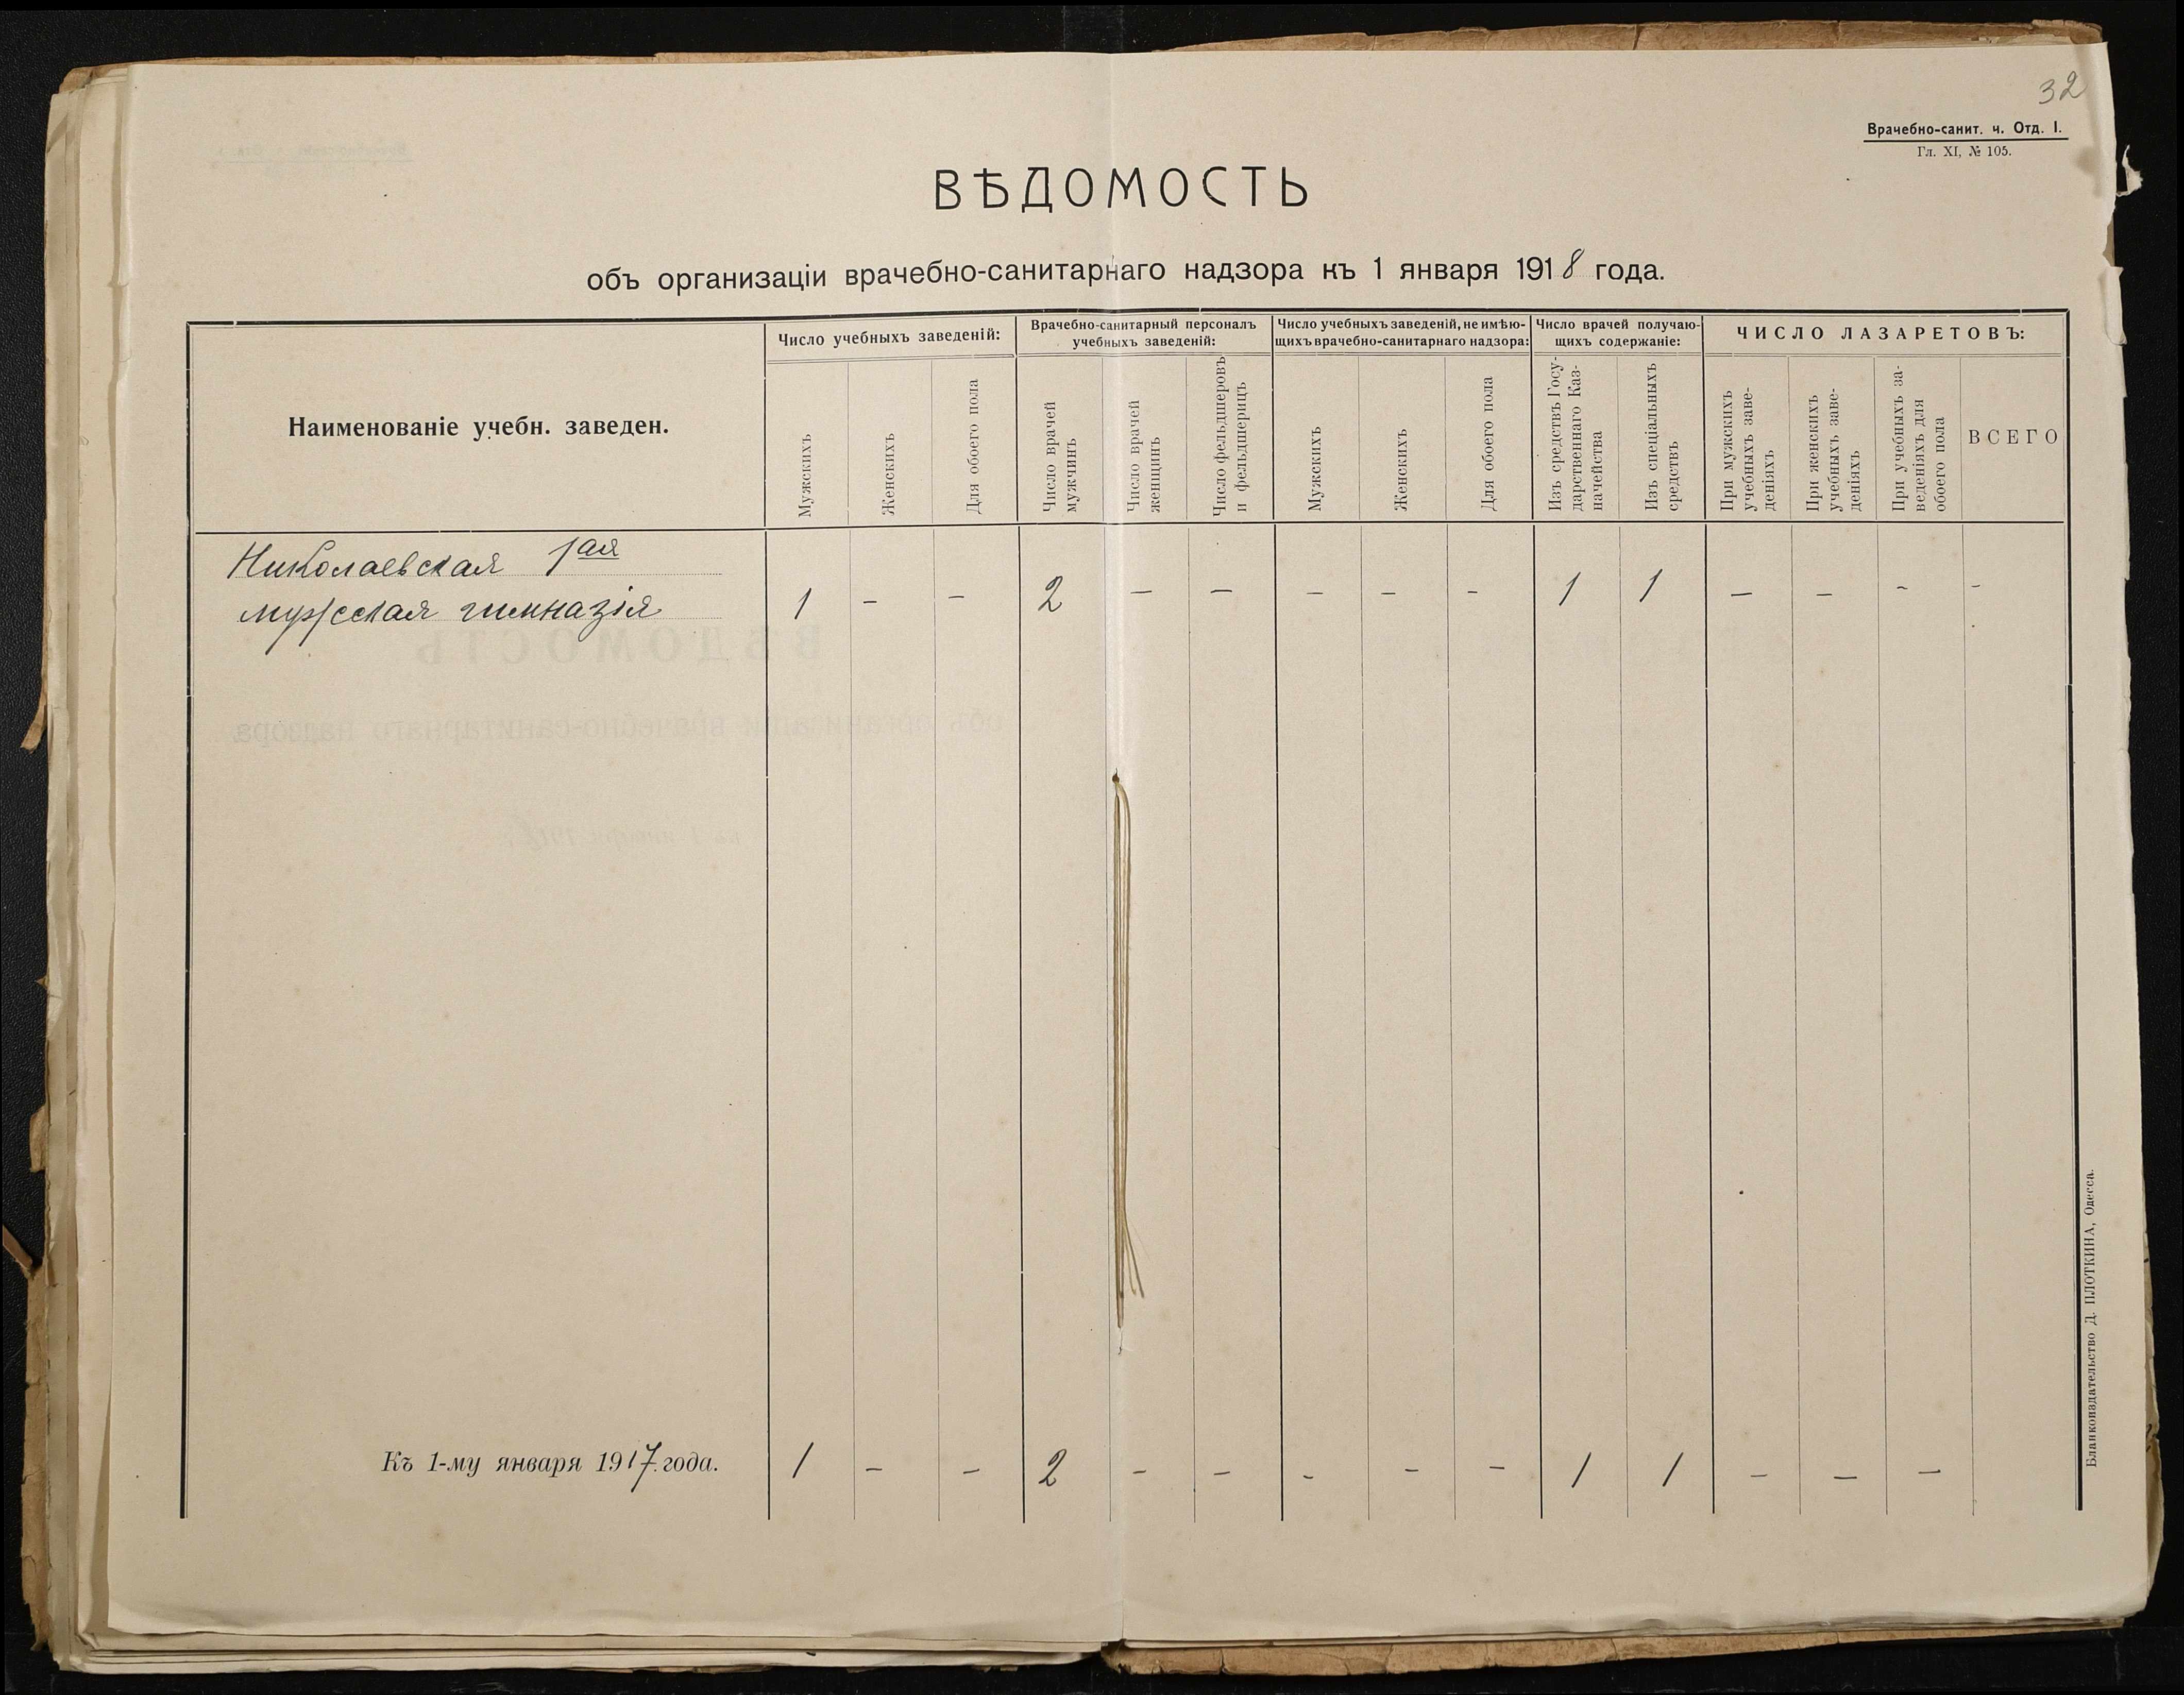 32
Врачебно-санит. ч. Отд. I.
Гл. XI, № 105.
ВѢДОМОСТЬ
объ организаціи врачебно-санитарнаго надзора къ 1 января 1918 года.
Наименованіе учебн. заведен.
Число учебныхъ заведеній:
Мужскихъ
Женскихъ
Для обоего пола
Врачебно-санитарный персоналъ
учебныхъ заведеній:
Число врачей
мужчинъ
Число врачей
женщинъ
Число фельдшеровъ
и фельдшерицъ
Число учебныхъ заведеній, не имѣю-
щихъ врачебно-санитарнаго надзора:
Мужскихъ
Женскихъ
Для обоего пола
Число врачей получаю-
щихъ содержаніе:
Изъ средствъ Госу-
дарственнаго Каз-
начейства
Изъ спеціальныхъ
средствъ
ЧИСЛО ЛАЗАРЕТОВЪ:
При мужскихъ
учебныхъ заве-
деніяхъ
При женскихъ
учебныхъ заве-
деніяхъ
При учебныхъ за-
веденіяхъ для
обоего пола
ВСЕГО
Николаевская 1ая
мужская гимназія 1 – – 2 – – – – – 1 1 – – – –
Къ 1-му января 1917 года. 1 – – 2 – – – – – 1 1 – – –
Бланкоиздательство Д. ПЛОТКИНА, Одесса.